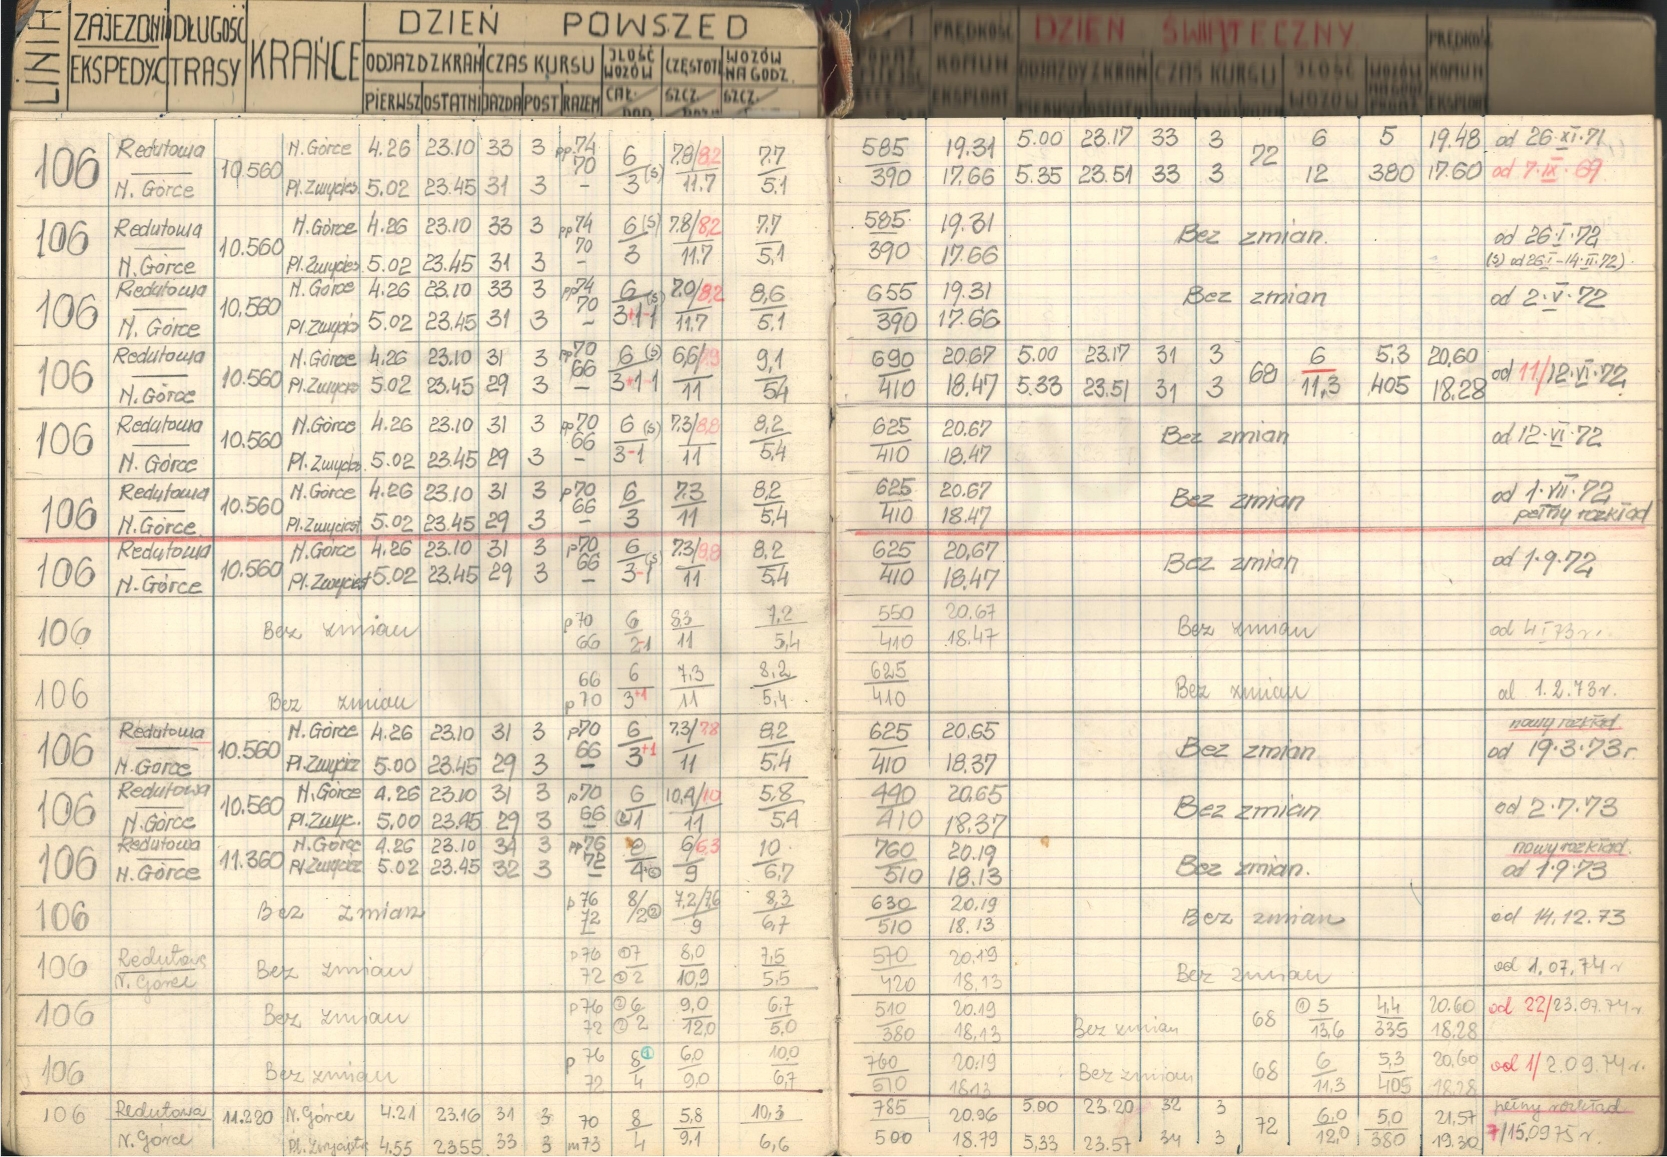 LINIA ZAJEZDN DŁUGOŚĆ KRAŃCE DZIEŃ POWSZED
EKSPEDYC TRASY ODJAZD Z KRAŃ CZAS KURSU JLOŚĆ WOZÓW CZĘSTOTL WOZÓW NA GODZ.
PIERWSZ OSTATNI JAZDA POST RAZEM CAŁ. SZCZ. SZCZ.
PRĘDKOŚĆ KOMUN EKSPLOAT DZIEŃ ŚWIĄTECZNY PRĘDKOŚ KOMUN EKSPLOAT
ODJAZDY Z KRAŃ CZAS KURSU JLOŚĆ WOZÓW
106 Redutowa 10.560 N.Górce 4.26 23.10 33 3 pp74 6 7.8/8.2 7.7 585 19.31 5.00 23.17 33 3 72 6 5 19.48 od 26.XI.71
N. Górce Pl.Zwycięs 5.02 23.45 31 3 70 – 3(s) 11.7 5.1 390 17.66 5.35 23.51 33 3 12 380 17.60 od 7.IX.69
106 Redutowa 10.560 N.Górce 4.26 23.10 33 3 pp74 6(s) 7.8/8.2 7.7 585 19.31 Bez zmian. od 26.I.72
N. Górce Pl.Zwycięs 5.02 23.45 31 3 70 – 3 11.7 5,1 390 17.66 (s) od 26.I-14.II.72)
106 Redutowa 10.560 N.Górce 4.26 23.10 33 3 pp74 6(s) 7.0/8.2 8,6 655 19.31 Bez zmian od 2.V.72
N. Górce Pl.Zwycię 5.02 23.45 31 3 70 – 3+1-1 11.7 5.1 390 17.66
106 Redutowa 10.560 N.Górce 4.26 23.10 31 3 pp70 6(s) 6,6/7.9 9,1 690 20.67 5.00 23.17 31 3 68 6 5.3 20,60 od 11/12.VI.72
N. Górce Pl.Zwycięs 5.02 23.45 29 3 66 – 3+1-1 11 5.4 410 18.47 5.33 23.51 31 3 11,3 405 18.28
106 Redutowa 10.560 N.Górce 4.26 23.10 31 3 pp70 6(s) 7.3/8.8 8,2 625 20.67 Bez zmian od 12.VI.72
N. Górce Pl.Zwycięs 5.02 23.45 29 3 66 – 3-1 11 5.4 410 18.47
106 Redutowa 10.560 N.Górce 4.26 23.10 31 3 p70 6 7.3 8.2 625 20.67 Bez zmian od 1.VII.72
N. Górce Pl.Zwycięst 5.02 23.45 29 3 66 – 3 11 5,4 410 18.47 pełny rozkład
106 Redutowa 10.560 N.Górce 4.26 23.10 31 3 p70 6 7.3/8.8 8,2 625 20,67 Bez zmian od 1.9.72
N. Górce Pl.Zwycięst 5.02 23.45 29 3 66 – 3-1(s) 11 5,4 410 18.47
106 Bez zmian p70 6 8,3 7,2 550 20.67 Bez zmian od 4.I.73r.
66 2-1 11 5,4 410 18.47
106 Bez zmian 66 6 7,3 8,2 625 Bez zmian od 1.2.73r.
p70 3+1 11 5,4 410
106 Redutowa 10.560 N.Górce 4.26 23.10 31 3 p70 6 7.3/7.8 8.2 625 20.65 Bez zmian nowy rozkład
N. Górce Pl.Zwycięz 5.00 23.45 29 3 66 – 3+1 11 5,4 410 18.37 od 19.3.73r.
106 Redutowa 10.560 N.Górce 4.26 23.10 31 3 p70 6 10,4/10 5,8 440 20.65 Bez zmian od 2.7.73
N.Górce Pl.Zwyc. 5.00 23.45 29 3 66 – 1 11 5,4 410 18.37
106 Redutowa 11.360 N.Górce 4.26 23.10 34 3 pp76 8 6/6,3 10 760 20.19 Bez zmian. nowy rozkład.
N. Górce Pl.Zwycięz 5.02 23.45 32 3 72 – 4 9 6,7 510 18.13 od 1.9.73
106 Bez zmian p76 8/2② 7,2/7,6 8,3 630 20.19 Bez zmian od 14.12.73
72 9 6,7 510 18.13
106 Redutowa Bez zmian p76 ①7 8,0 7,5 570 20.19 Bez zmian od 1.07.74r
N. Górce 72 ②2 10,9 5.5 420 18,13
106 Bez zmian p76 ②6 9,0 6,7 510 20.19 Bez zmian 68 ①5 4,4 20.60 od 22/23.07.74r
72 ②2 12,0 5,0 380 18,13 13,6 335 18.28
106 Bez zmian p 76 8① 6,0 10,0 760 20.19 Bez zmian 68 6 5,3 20,60 od 1/2.09.74r.
72 4 9,0 6,7 510 18.13 11,3 405 18.28
106 Redutowa 11.220 N.Górce 4.21 23.16 31 3 70 8 5,8 10,3 785 20.96 5.00 23.20 32 3 72 6,0 5,0 21,57 pełny rozkład
N. Górce Pl. Zwycięstw 4.55 23.55 33 3 m73 4 9,1 6,6 500 18.79 5,33 23.57 34 3 12,0 380 19.30 7/15.09.75r.